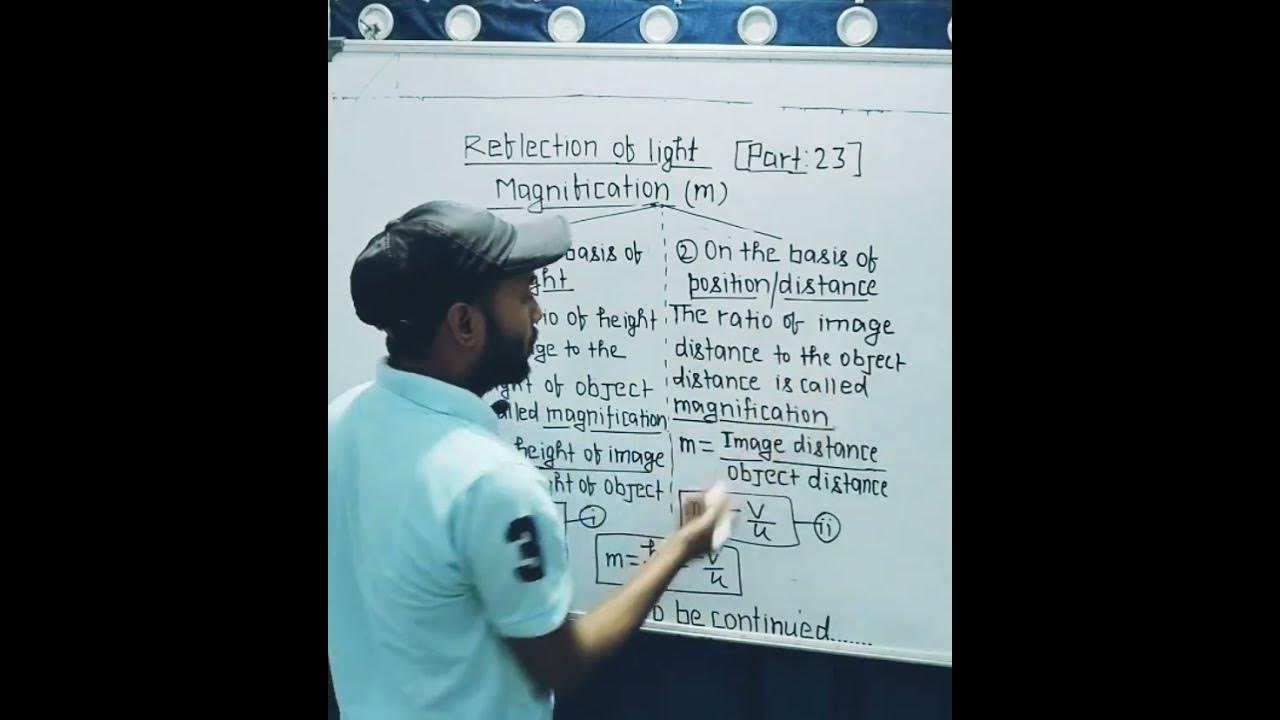 Reflection of light [Part:23]
Magnification (m)
basis of
The ratio of height
to the
of object
magnification
height of image
of object
i
② On the basis of
position/distance
The ratio of image
distance to the object
distance is called
magnification
m = Image distance
object distance
v
u
ii
m =
v
u
be continued.......
3